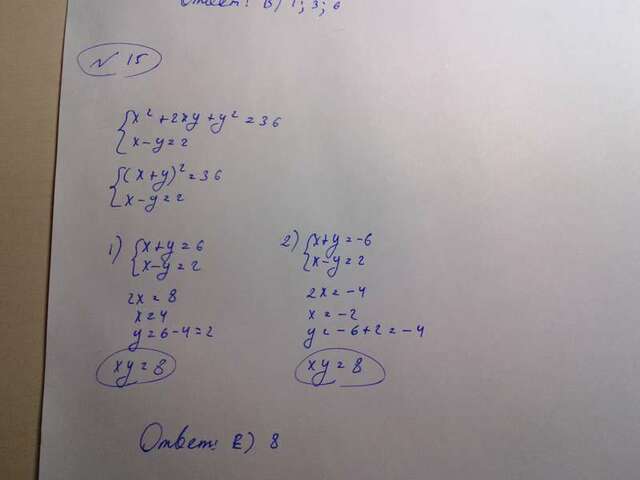 Ответ: В) 1; 3; 6
№ 15
x² + 2xy + y² = 36
x - y = 2
(x + y)² = 36
x - y = 2
1) x + y = 6
x - y = 2
2x = 8
x = 4
y = 6 - 4 = 2
xy = 8
2) x + y = -6
x - y = 2
2x = -4
x = -2
y = -6 + 2 = -4
xy = 8
Ответ: E) 8